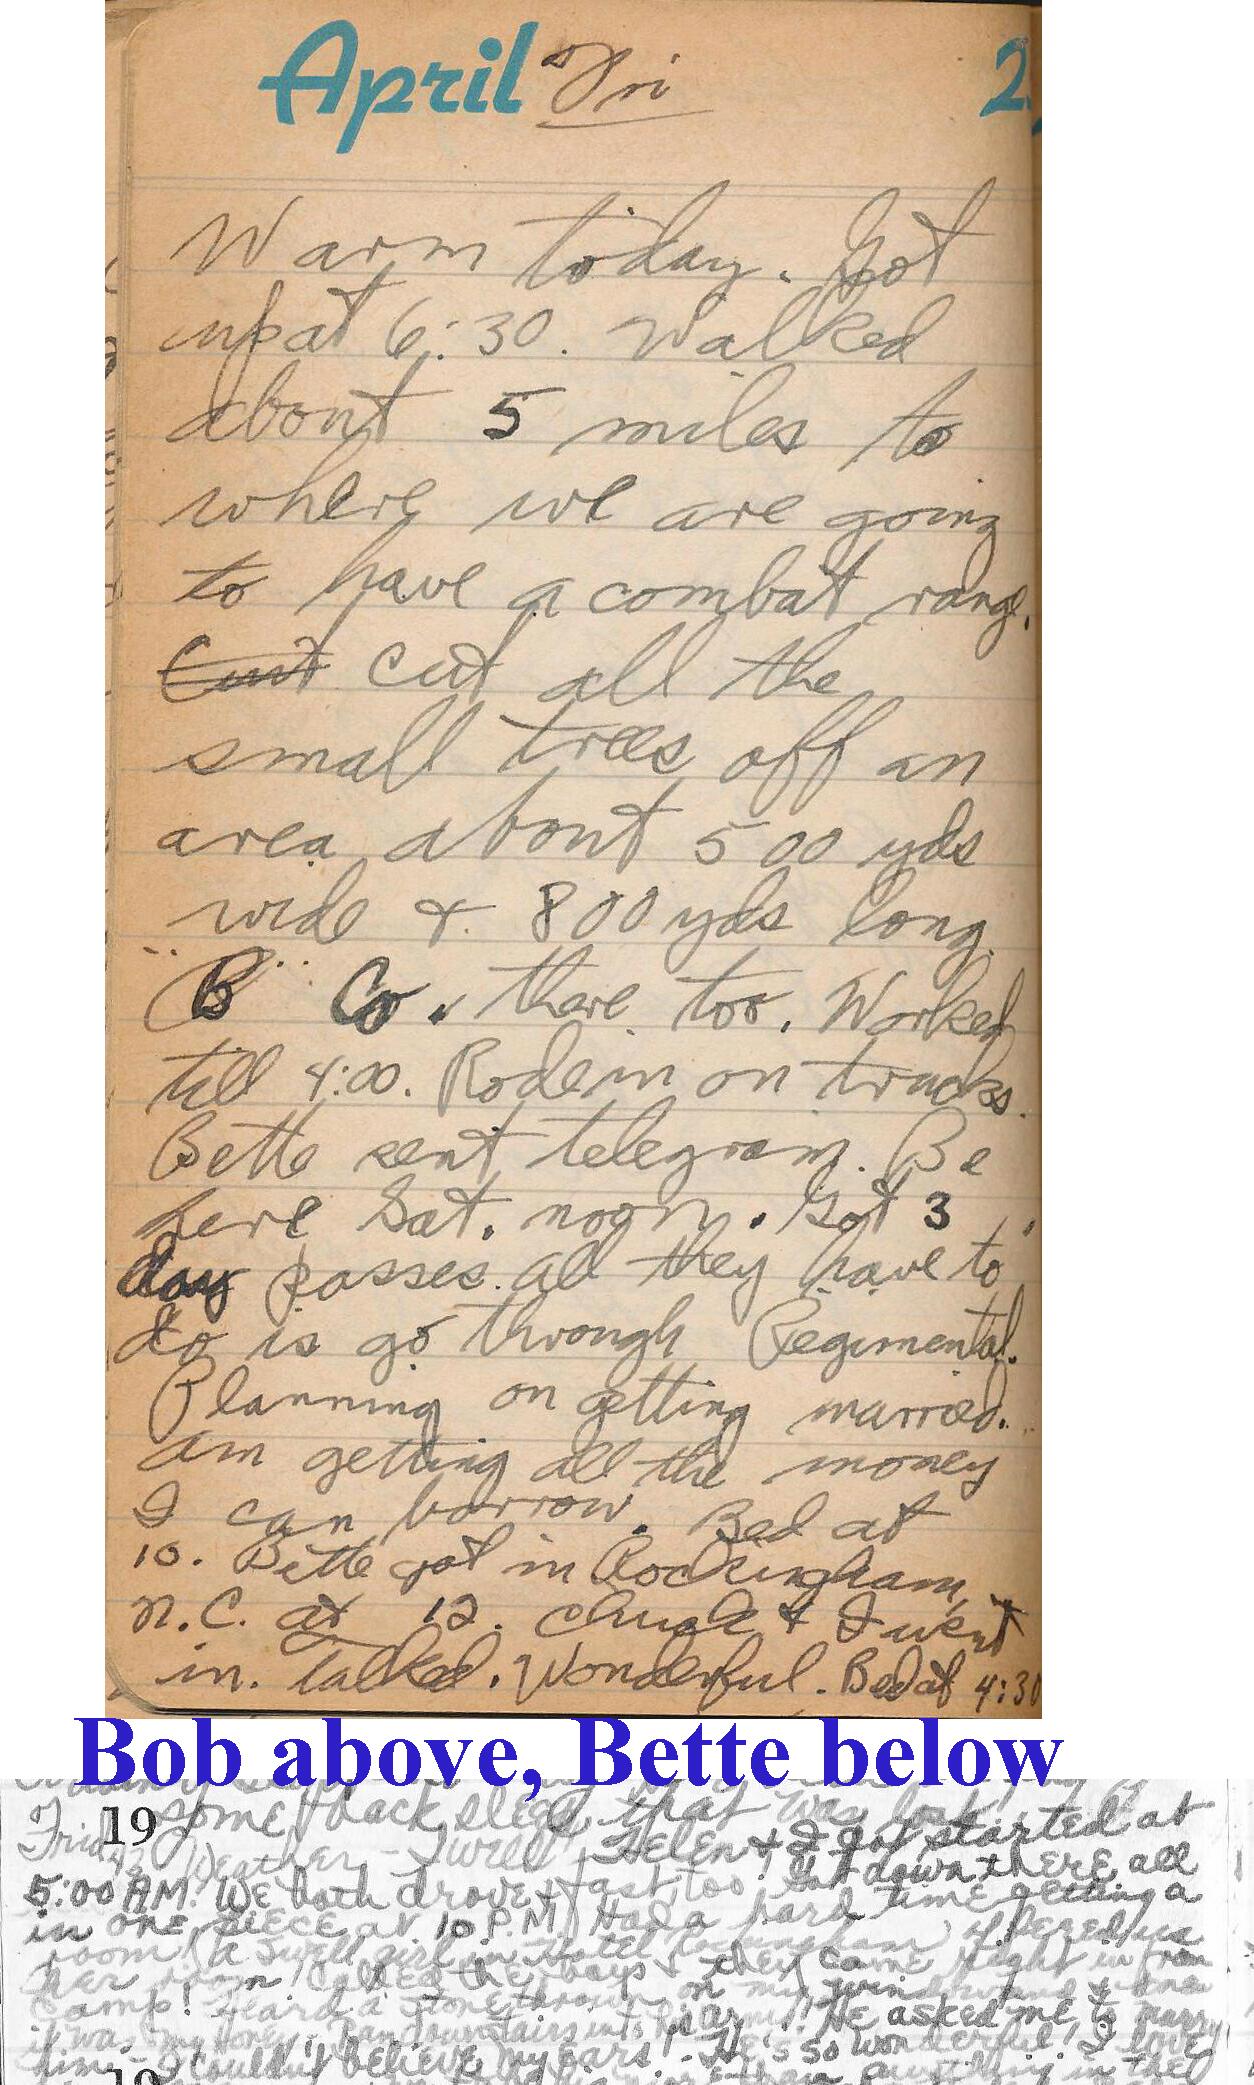 April Fri 2
Warm today. Got
up at 6:30. Walked
about 5 miles to
where we are going
to have a combat range.
Cut all the
small trees off an
area about 500 yds
wide & 800 yds long.
"B" Co. there too. Worked
till 4:00. Rode in on trucks.
Bette sent telegram. Be
here Sat. noon. Got 3
day passes. All they have to
do is go through Regimental.
Planning on getting married.
Am getting all the money
I can borrow. Bed at
10. Bette got in Rockingham,
N.C. at 12. Chuck & I went
in. Talked. Wonderful. Bed at 4:30
Bob above, Bette below
some back sleep that was lost!
19
Weather - Swell! Helen & I got started at
5:00 AM! We both drove, fast, too! Got down there all
in one piece at 10 P.M! Had a hard time getting a
room! A swell girl in Hotel Rockingham offered us
her room! Called the boys & they came right in from
camp! Heard a stone thrown on my window & knew
it was my honey! Ran downstairs into his arms! He asked me to marry
him - I couldn't believe my ears! He's so wonderful! I love
anything in the
19